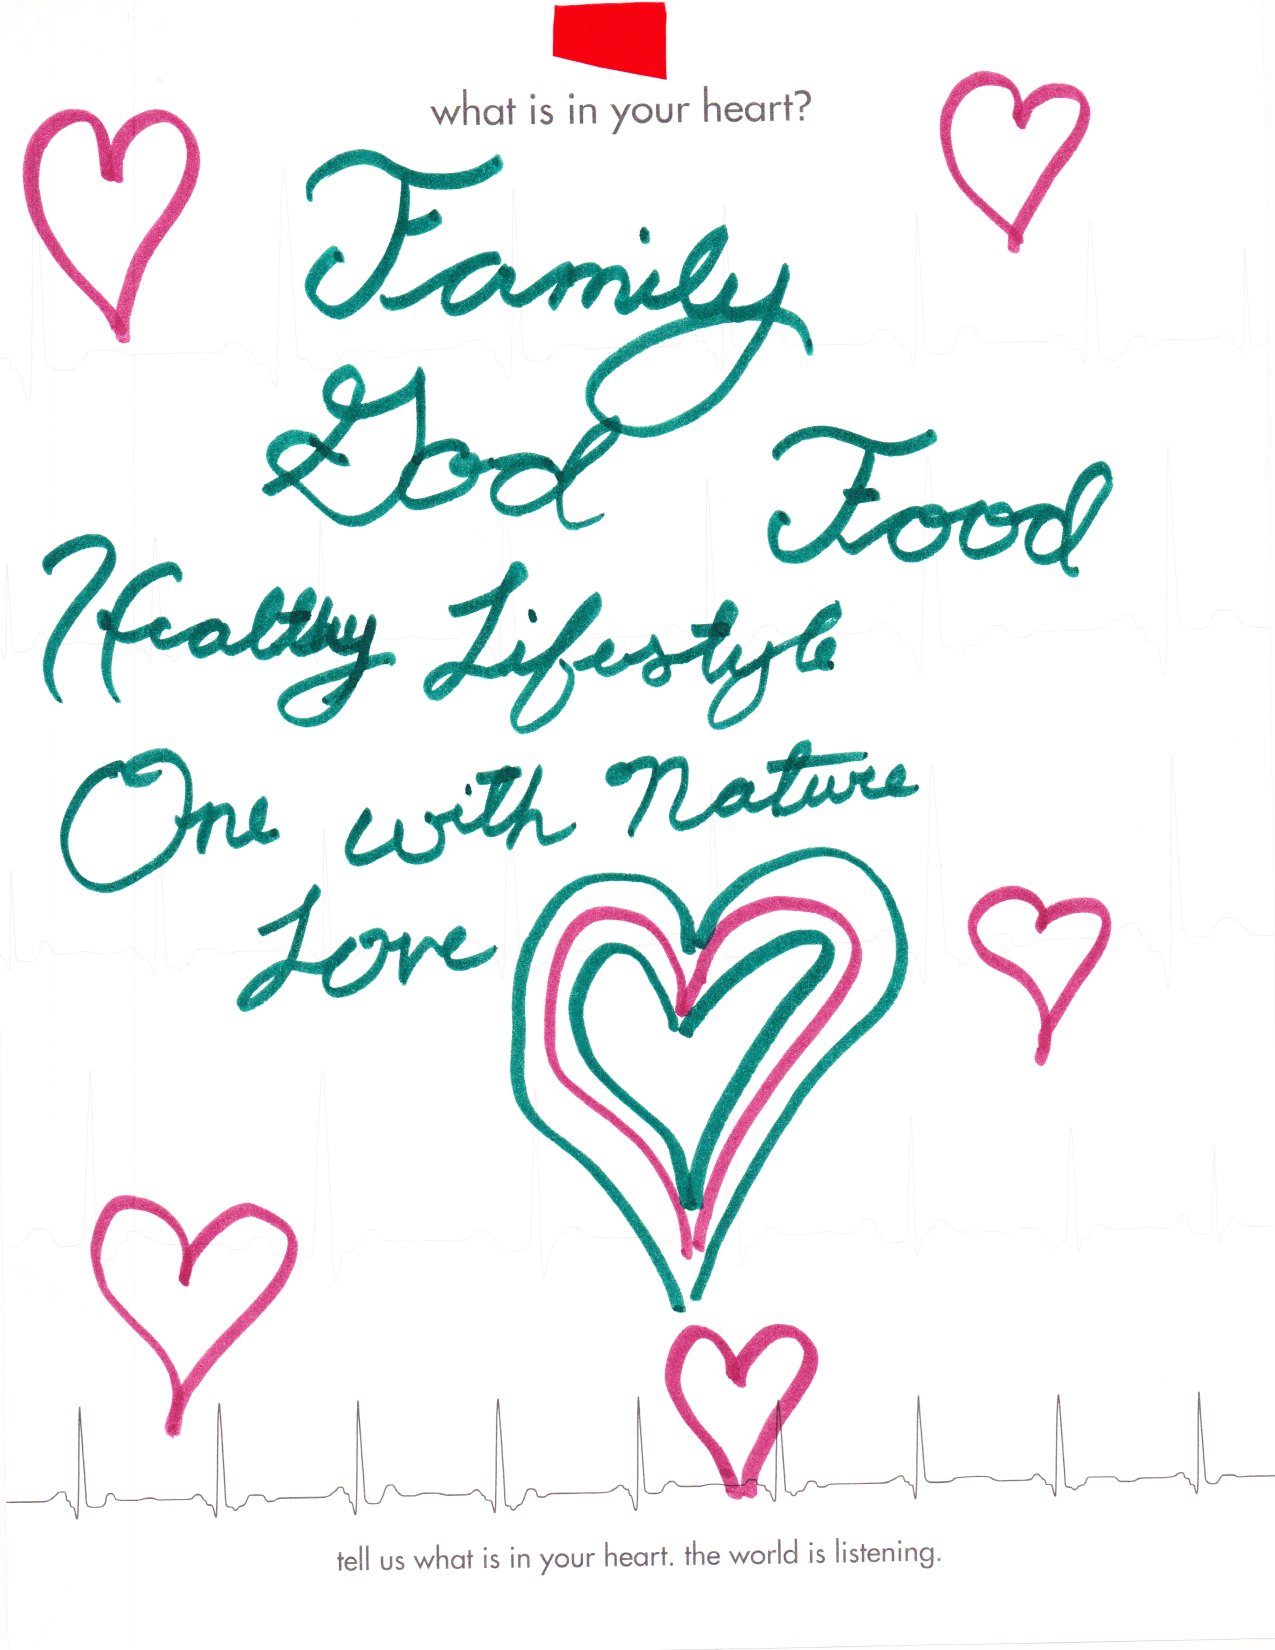 what is in your heart?
Family
God
Food
Healthy Lifestyle
One with Nature
Love
tell us what is in your heart. the world is listening.